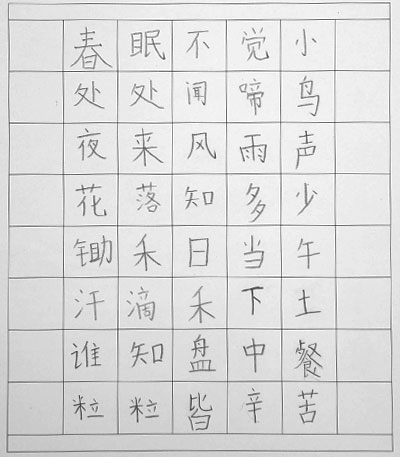 春眠不觉小
处处闻啼鸟
夜来风雨声
花落知多少
锄禾日当午
汗滴禾下土
谁知盘中餐
粒粒皆辛苦